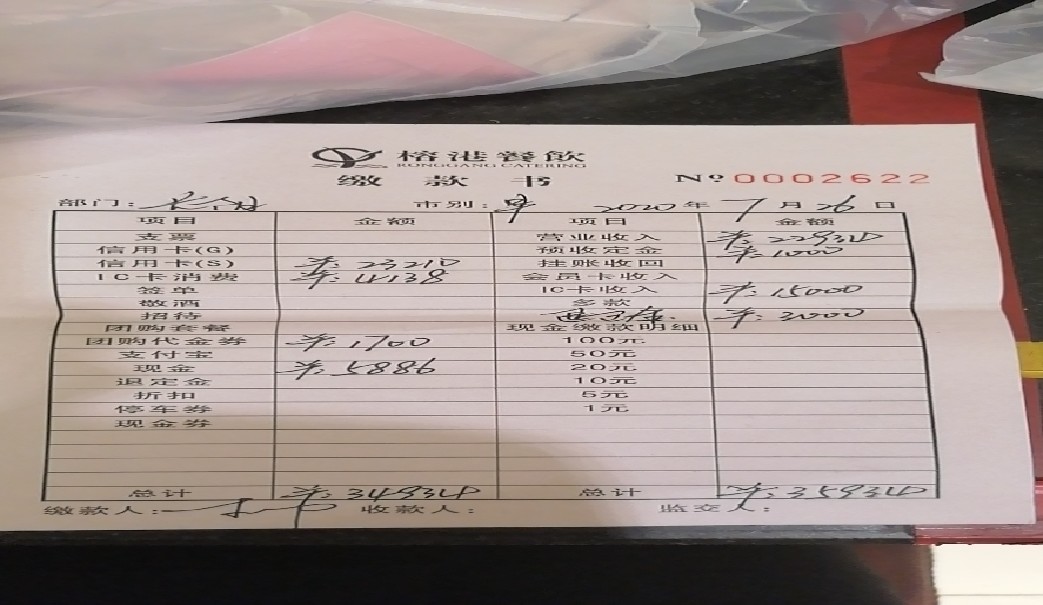 榕港餐飲
RONGGANG CATERING
缴款书 № 0002622
部门: 市别:早 2020年7月26日
项目 金额 项目 金额
支票 营业收入 羊:22934
信用卡(G) 预收定金 羊:1000
信用卡(S) 羊:23210 挂账收回
IC卡消费 羊:4138 会员卡收入
签单 IC卡收入 羊:15000
敬酒 多款
招待 羊:3000
团购套餐 现金缴款明细
团购代金券 羊:1700 100元
支付宝 50元
现金 羊:5886 20元
退定金 10元
折扣 5元
停车券 1元
现金券
总计 羊:34934 总计 羊:35934
缴款人: 收款人: 监交人: